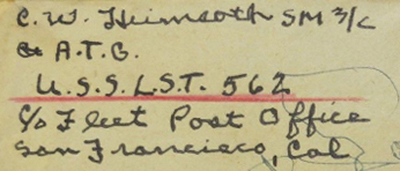 C. W. Heimsoth SM 3/c
A.T.B.
U.S.S. L.S.T. 562
c/o Fleet Post Office
San Francisco, Cal